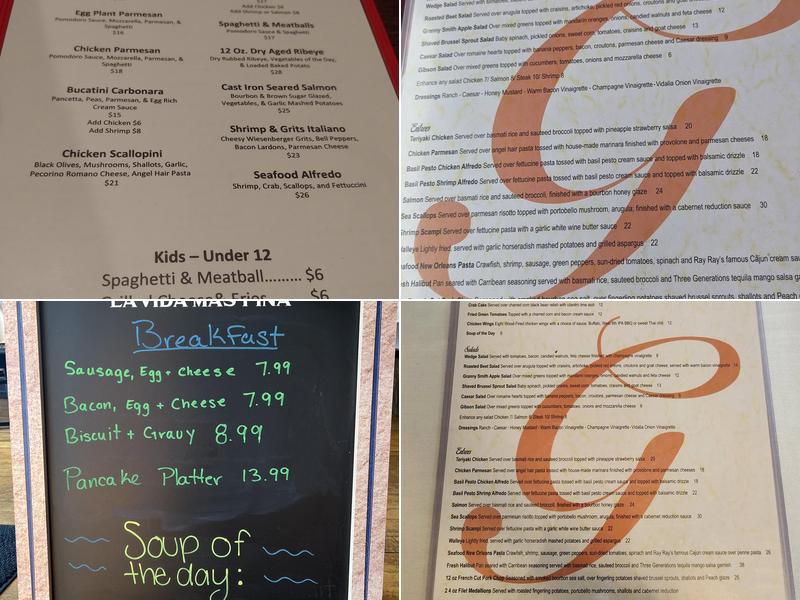 Egg Plant Parmesan
Pomodoro Sauce, Mozzarella, Parmesan, &
Spaghetti
$16
Chicken Parmesan
Pomodoro Sauce, Mozzarella, Parmesan, &
Spaghetti
$18
Bucatini Carbonara
Pancetta, Peas, Parmesan, & Egg Rich
Cream Sauce
$15
Add Chicken $6
Add Shrimp $8
Chicken Scallopini
Black Olives, Mushrooms, Shallots, Garlic,
Pecorino Romano Cheese, Angel Hair Pasta
$21
$17
Add Chicken $6
Add Shrimp or Salmon $8
Spaghetti & Meatballs
Pomodoro Sauce & Spaghetti
$17
12 Oz. Dry Aged Ribeye
Dry Rubbed Ribeye, Vegetables of the Day,
& Loaded Baked Potato
$28
Cast Iron Seared Salmon
Bourbon & Brown Sugar Glazed,
Vegetables, & Garlic Mashed Potatoes
$25
Shrimp & Grits Italiano
Cheesy Wiesenberger Grits, Bell Peppers,
Bacon Lardons, Parmesan Cheese
$23
Seafood Alfredo
Shrimp, Crab, Scallops, and Fettuccini
$26
Kids – Under 12
Spaghetti & Meatball......... $6
Grill d Cheese & Fries $6
Wedge Salad Served with tomatoes, bacon, candied walnuts, feta cheese
Roasted Beet Salad Served over arugula topped with craisins, artichoke, pickled red onions, croutons and goat
Granny Smith Apple Salad Over mixed greens topped with mandarin oranges, onions, candied walnuts and feta cheese 12
Shaved Brussel Sprout Salad Baby spinach, pickled onions, sweet corn, tomatoes, craisins and goat cheese 13
Caesar Salad Over romaine hearts topped with banana peppers, bacon, croutons, parmesan cheese and Caesar dressing 9
Gibson Salad Over mixed greens topped with cucumbers, tomatoes, onions and mozzarella cheese 6
Enhance any salad Chicken 7/ Salmon & Steak 10/ Shrimp 8
Dressings Ranch - Caesar - Honey Mustard - Warm Bacon Vinaigrette - Champagne Vinaigrette -Vidalia Onion Vinaigrette
Entrees
Teriyaki Chicken Served over basmati rice and sauteed broccoli topped with pineapple strawberry salsa 20
Chicken Parmesan Served over angel hair pasta tossed with house-made marinara finished with provolone and parmesan cheeses 18
Basil Pesto Chicken Alfredo Served over fettucine pasta tossed with basil pesto cream sauce and topped with balsamic drizzle 18
Basil Pesto Shrimp Alfredo Served over fettucine pasta tossed with basil pesto cream sauce and topped with balsamic drizzle 22
Salmon Served over basmati rice and sauteed broccoli, finished with a bourbon honey glaze 24
Sea Scallops Served over parmesan risotto topped with portobello mushroom, arugula; finished with a cabernet reduction sauce 30
Shrimp Scampi Served over fettucine pasta with a garlic white wine butter sauce 22
Walleye Lightly fried, served with garlic horseradish mashed potatoes and grilled asparagus 22
afood New Orleans Pasta Crawfish, shrimp, sausage, green peppers, sun-dried tomatoes, spinach and Ray Ray's famous Cajun cream sau
sh Halibut Pan seared with Carribean seasoning served with basmati rice, sauteed broccoli and Three Generations tequila mango salsa ga
LA VIDA MAS FINA
Breakfast
Sausage, Egg + Cheese 7.99
Bacon, Egg + Cheese 7.99
Biscuit + Gravy 8.99
Pancake Platter 13.99
Soup of
the day:
Crab Cake Served over charred corn black bean relish with cilantro lime aioli 12
Fried Green Tomatoes Topped with a charred corn and bacon cream sauce 12
Chicken Wings Eight Wood-Fired chicken wings with a choice of sauce: Buffalo, West 6th IPA BBQ or sweet Thai chili 12
Soup of the Day 6
Salads
Wedge Salad Served with tomatoes, bacon, candied walnuts, feta cheese finished with champagne vinaigrette 9
Roasted Beet Salad Served over arugula topped with craisins, artichoke, pickled red onions, croutons and goat cheese, served with warm bacon vinaigrette 14
Granny Smith Apple Salad Over mixed greens topped with mandarin oranges, onions, candied walnuts and feta cheese 12
Shaved Brussel Sprout Salad Baby spinach, pickled onions, sweet corn, tomatoes, craisins and goat cheese 13
Caesar Salad Over romaine hearts topped with banana peppers, bacon, croutons, parmesan cheese and Caesar dressing 9
Gibson Salad Over mixed greens topped with cucumbers, tomatoes, onions and mozzarella cheese 6
Enhance any salad Chicken 7/ Salmon & Steak 10/ Shrimp 8
Dressings Ranch - Caesar - Honey Mustard - Warm Bacon Vinaigrette - Champagne Vinaigrette -Vidalia Onion Vinaigrette
Entrees
Teriyaki Chicken Served over basmati rice and sauteed broccoli topped with pineapple strawberry salsa 20
Chicken Parmesan Served over angel hair pasta tossed with house-made marinara finished with provolone and parmesan cheeses 18
Basil Pesto Chicken Alfredo Served over fettucine pasta tossed with basil pesto cream sauce and topped with balsamic drizzle 18
Basil Pesto Shrimp Alfredo Served over fettucine pasta tossed with basil pesto cream sauce and topped with balsamic drizzle 22
Salmon Served over basmati rice and sauteed broccoli, finished with a bourbon honey glaze 24
Sea Scallops Served over parmesan risotto topped with portobello mushroom, arugula; finished with a cabernet reduction sauce 30
Shrimp Scampi Served over fettucine pasta with a garlic white wine butter sauce 22
Walleye Lightly fried, served with garlic horseradish mashed potatoes and grilled asparagus 22
Seafood New Orleans Pasta Crawfish, shrimp, sausage, green peppers, sun-dried tomatoes, spinach and Ray Ray's famous Cajun cream sauce over penne pasta 26
Fresh Halibut Pan seared with Carribean seasoning served with basmati rice, sauteed broccoli and Three Generations tequila mango salsa garnish 38
12 oz French Cut Pork Chop Seasoned with smoked bourbon sea salt, over fingerling potatoes shaved brussel sprouts, shallots and Peach glaze 25
2 4 oz Filet Medallions Served with roasted fingerling potatoes, portobello mushroom and